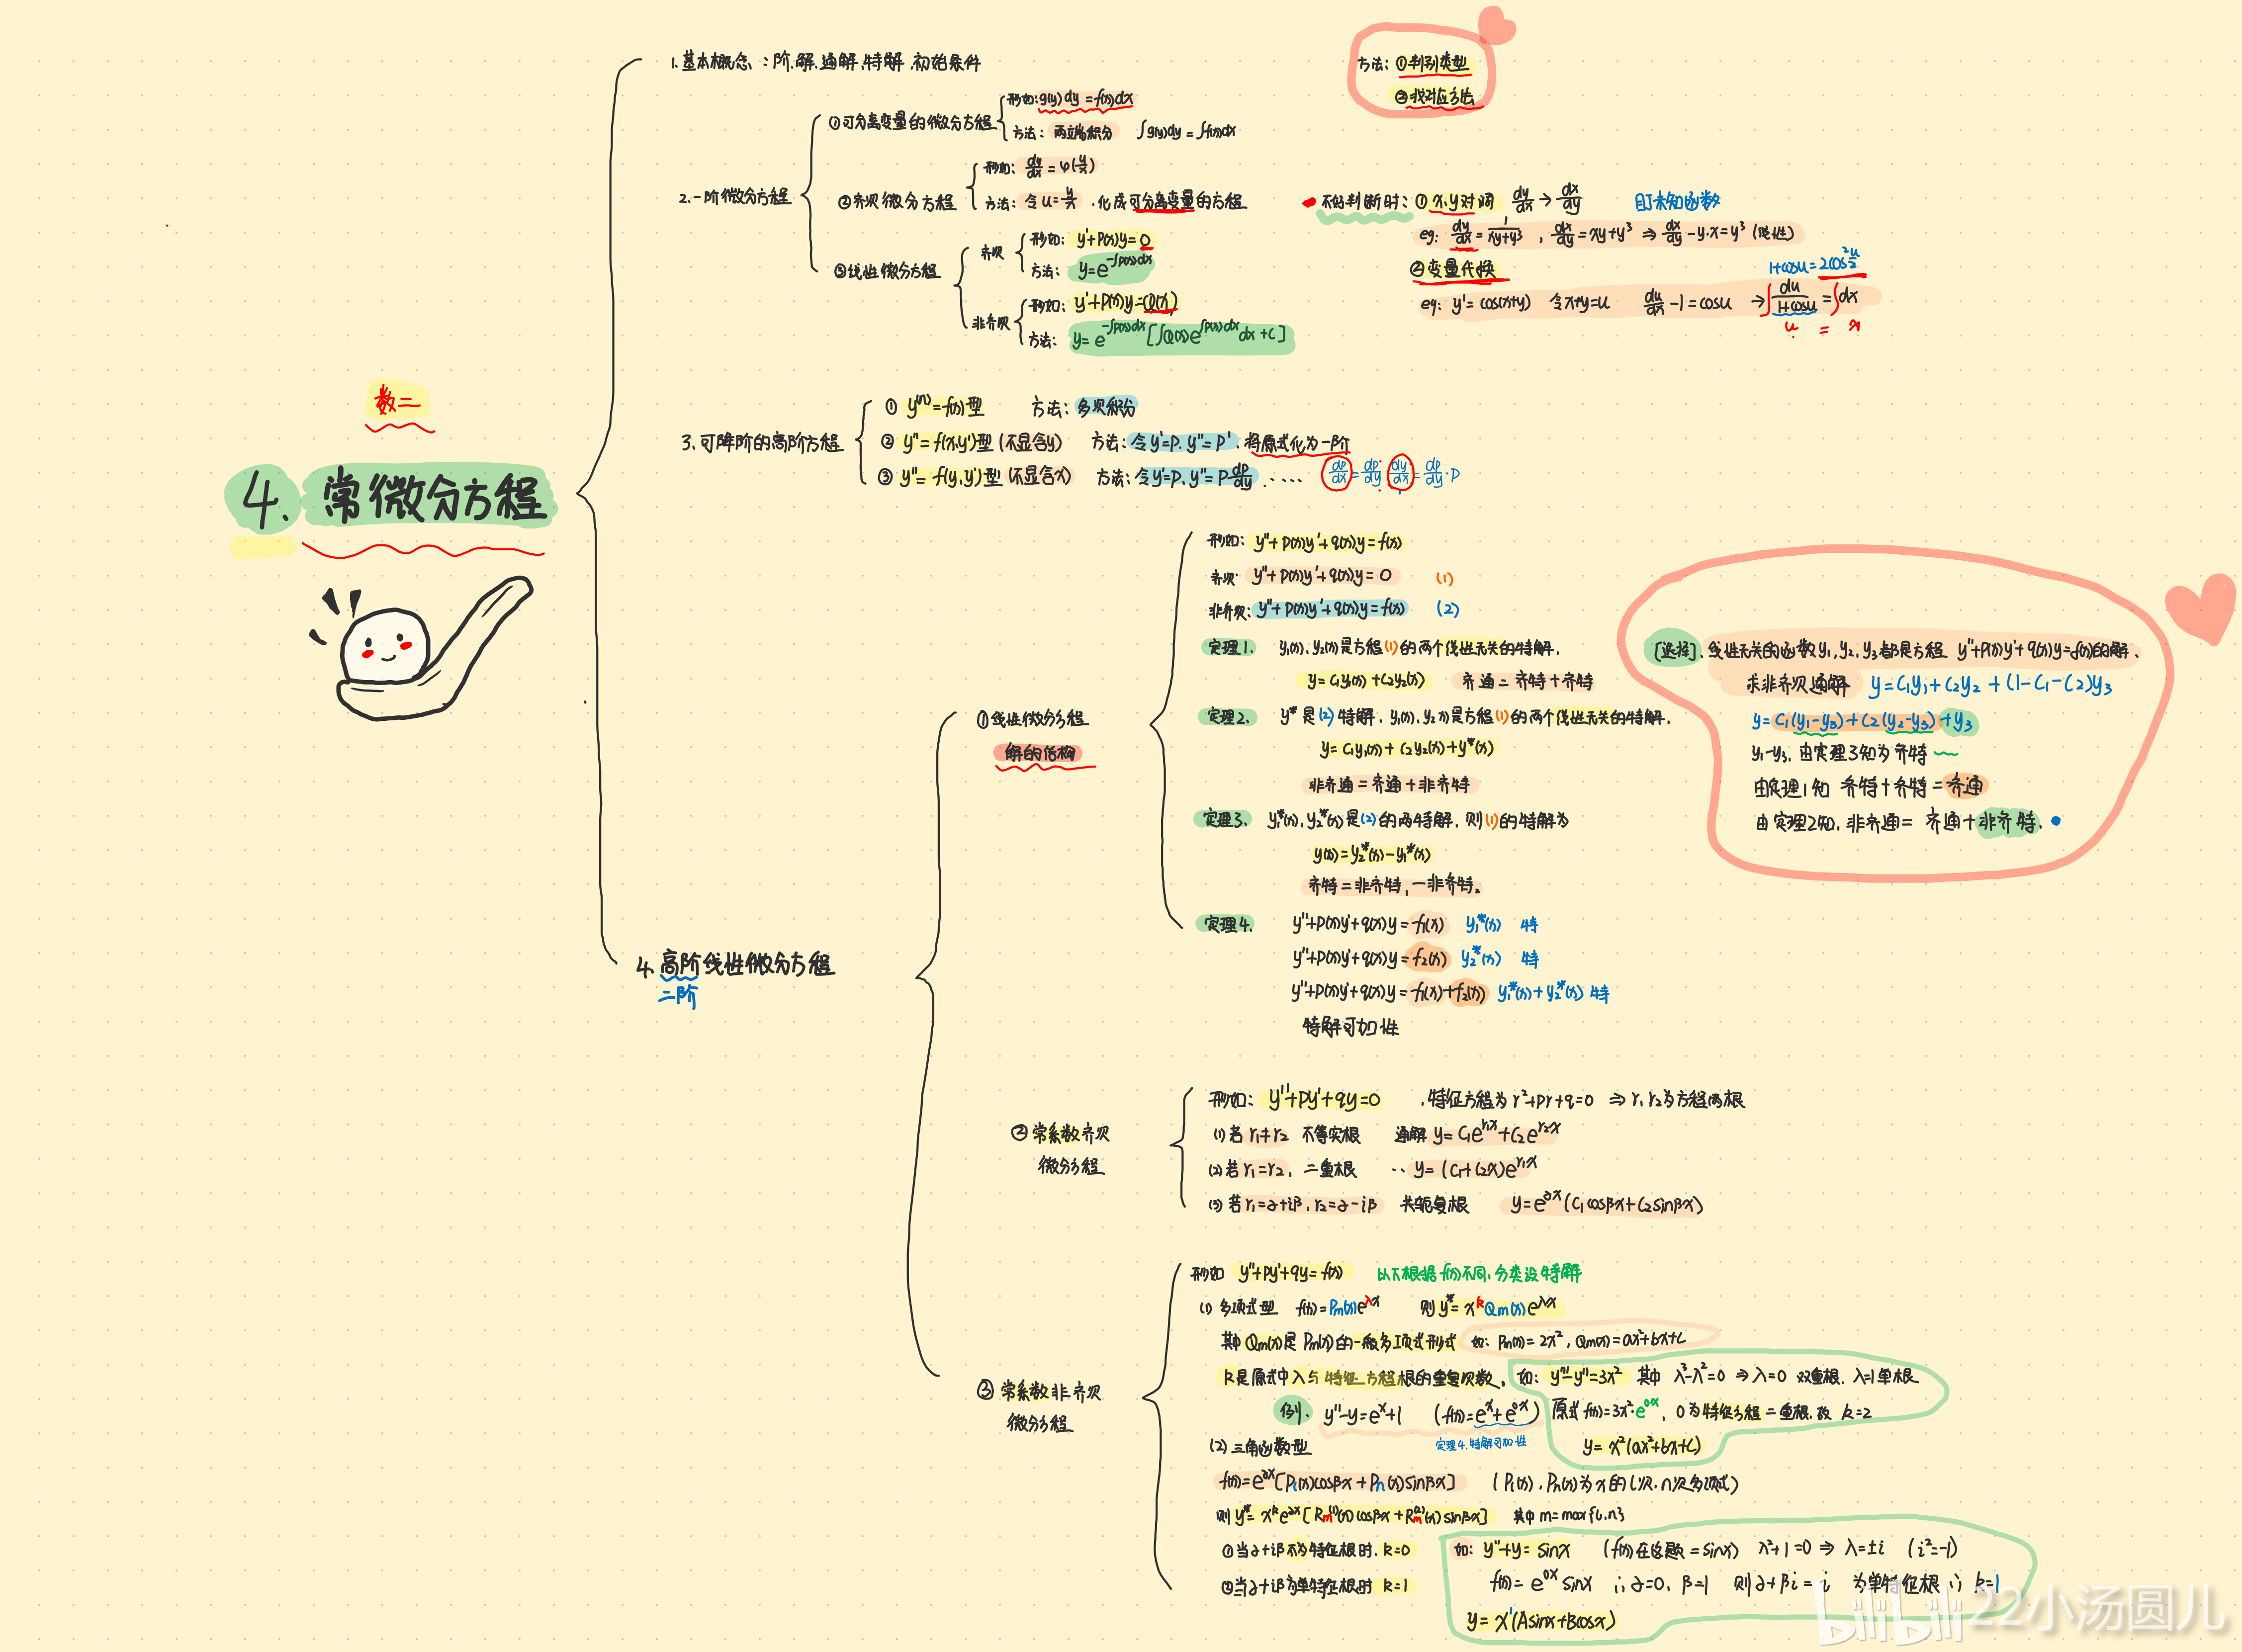 数二
4. 常微分方程
1.基本概念:阶.解.通解.特解.初始条件
方法:①判别类型
②找对应方法
2.一阶微分方程
①可分离变量的微分方程
形如:g(y)dy=f(x)dx
方法:两端积分 ∫g(y)dy=∫f(x)dx
②齐次微分方程
形如:dy/dx=φ(y/x)
方法:令u=y/x.化成可分离变量的方程
③线性微分方程
齐次
形如:y'+P(x)y=0
方法:y=e^{-∫P(x)dx}
非齐次
形如:y'+P(x)y=Q(x)
方法:y=e^{-∫P(x)dx}[∫Q(x)e^{∫P(x)dx}dx+C]
不好判断时:①x.y对调 dy/dx→dx/dy 且x未知函数
eg: dy/dx=1/(xy+y³), dx/dy=xy+y³⇒dx/dy-y·x=y³(线性)
②变量代换
1+cosu=2cos²u/2
eg: y'=cos(x+y) 令x+y=u du/dx-1=cosu →∫du/(1+cosu)=∫dx
u = x
3.可降阶的高阶方程
①y⁽ⁿ⁾=f(x)型 方法:多次积分
②y''=f(x,y')型(不显含y) 方法:令y'=P.y''=P'.将原式化为一阶
③y''=f(y,y')型(不显含x) 方法:令y'=P.y''=P dp/dy.···· dp/dx=dp/dy·dy/dx=dp/dy·P
4.高阶线性微分方程
二阶
①线性微分方程
解的结构
形如:y''+P(x)y'+q(x)y=f(x)
齐次:y''+P(x)y'+q(x)y=0 (1)
非齐次:y''+P(x)y'+q(x)y=f(x) (2)
定理1. y₁(x).y₂(x)是方程(1)的两个线性无关的特解.
y=C₁y₁(x)+C₂y₂(x) 齐通=齐特+齐特
定理2. y*是(2)特解.y₁(x).y₂(x)是方程(1)的两个线性无关的特解.
y=C₁y₁(x)+C₂y₂(x)+y*(x)
非齐通=齐通+非齐特
定理3. y₁*(x).y₂*(x)是(2)的两特解.则(1)的特解为
y(x)=y₂*(x)-y₁*(x)
齐特=非齐特,-非齐特.
定理4. y''+P(x)y'+q(x)y=f₁(x) y₁*(x) 特
y''+P(x)y'+q(x)y=f₂(x) y₂*(x) 特
y''+P(x)y'+q(x)y=f₁(x)+f₂(x) y₁*(x)+y₂*(x) 特
特解可加性
[选择].线性无关的函数y₁,y₂,y₃都是方程 y''+P(x)y'+q(x)y=f(x)的解、
求非齐次通解 y=C₁y₁+C₂y₂+(1-C₁-C₂)y₃
y=C₁(y₁-y₃)+C₂(y₂-y₃)+y₃
y₁-y₃.由定理3知为齐特
由定理1知 齐特+齐特=齐通
由定理2知.非齐通=齐通+非齐特.
②常系数齐次
微分方程
形如:y''+py'+qy=0 .特征方程为r²+pr+q=0 ⇒r₁r₂为方程两根
(1)若r₁≠r₂ 不等实根 通解y=C₁e^{r₁x}+C₂e^{r₂x}
(2)若r₁=r₂,二重根 ··y=(C₁+C₂x)e^{r₁x}
(3)若r₁=α+iβ.r₂=α-iβ 共轭复根 y=e^{αx}(C₁cosβx+C₂sinβx)
③常系数非齐次
微分方程
形如 y''+py'+qy=f(x) 以下根据f(x)不同,分类设特解
(1)多项式型 f(x)=Pm(x)e^{λx} 则y*=x^k Qm(x)e^{λx}
其中Qm(x)是Pm(x)的一般多项式形式 如:Pm(x)=2x²,Qm(x)=ax²+bx+c
k是原式中入与特征方程根的重复次数。如:y'''-y''=3x² 其中 λ³-λ²=0 ⇒λ=0 双重根.λ=1单根
例. y''-y=e^x+1 (f(x)=e^x+e^{0x}) 原式f(x)=3x²·e^{0x},0为特征方程二重根.故 k=2
定理4.特解可加性
y=x²(ax²+bx+c)
(2)三角函数型
f(x)=e^{αx}[Pl(x)cosβx+Pn(x)sinβx] (Pl(x).Pn(x)为x的l次.n次多项式)
则y*=x^k e^{αx}[Rm⁽¹⁾(x)cosβx+Rm⁽²⁾(x)sinβx] 其中m=max{l.n}
①当α+iβ不为特征根时.k=0
②当α+iβ为单特征根时 k=1
如:y''+y=sinx (f(x)在这题=sinx) λ²+1=0⇒λ=±i (i²=-1)
f(x)=e^{0x}sinx ∴α=0,β=1 则α+βi=i 为单特征根 ∴k=1
y=x¹(Asinx+Bcosx)
bilibili 22小汤圆儿